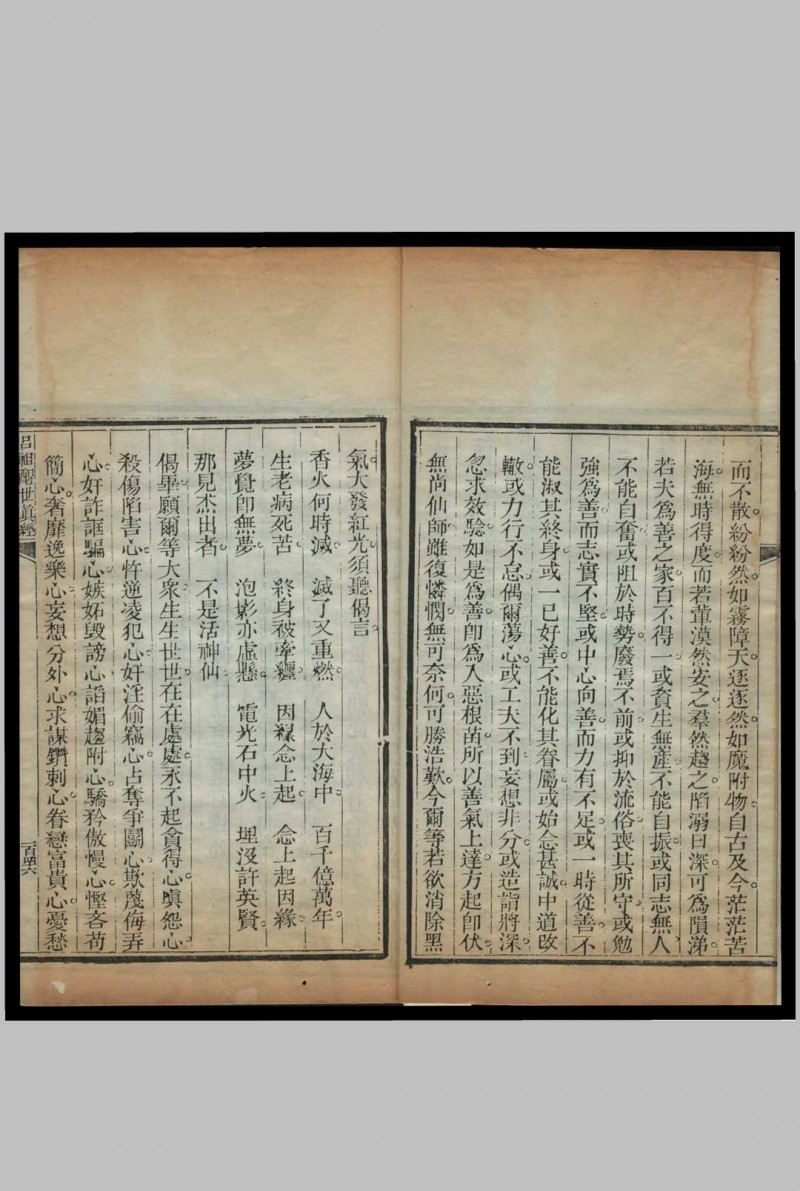 而不散。紛紛然如霧障天。逐逐然如魔附物。自古及今。茫茫苦
海。無時得度。而若輩漠然安之。羣然趨之。陷溺日深。可爲隕涕。
若夫爲善之家。百不得一。或貧生無產。不能自振。或同志無人。
不能自奮。或阻於時勢。廢焉不前。或抑於流俗。喪其所守。或勉
強爲善。而志實不堅。或中心向善。而力有不足。或一時從善。不
能淑其終身。或一已好善。不能化其眷屬。或始念甚誠。中道改
轍。或力行不怠。偶爾蕩心。或工夫不到。妄想非分。或造詣將深。
忽求效驗。如是爲善。卽爲入惡根苗。所以善氣上達。方起卽伏。
無尚仙師。雖復憐憫。無可奈何。可勝浩歎。今爾等若欲消除黑
氣。大發紅光。須聽偈言。
香火何時滅。 滅了又重燃。 人於大海中。 百千億萬年。
生老病死苦。 終身被牽纏。 因緣念上起。 念上起因緣。
夢覺卽無夢。 泡影亦虛懸。 電光石中火。 埋沒許英賢。
那見杰出者。 不是活神仙
偈畢。願爾等大衆。生生世世。在在處處。永不起貪得心。嗔怨心。
殺傷陷害心。忤逆凌犯心。奸淫偷竊心。占奪爭鬭心。欺蔑侮弄
心。奸詐誆騙心。嫉妬毀謗心。謟媚趨附心。驕矜傲慢心。慳吝苟
簡心。奢靡逸樂心。妄想分外心。求謀鑽刺心。眷戀富貴心。憂愁
呂祖醒世眞經
一百四六